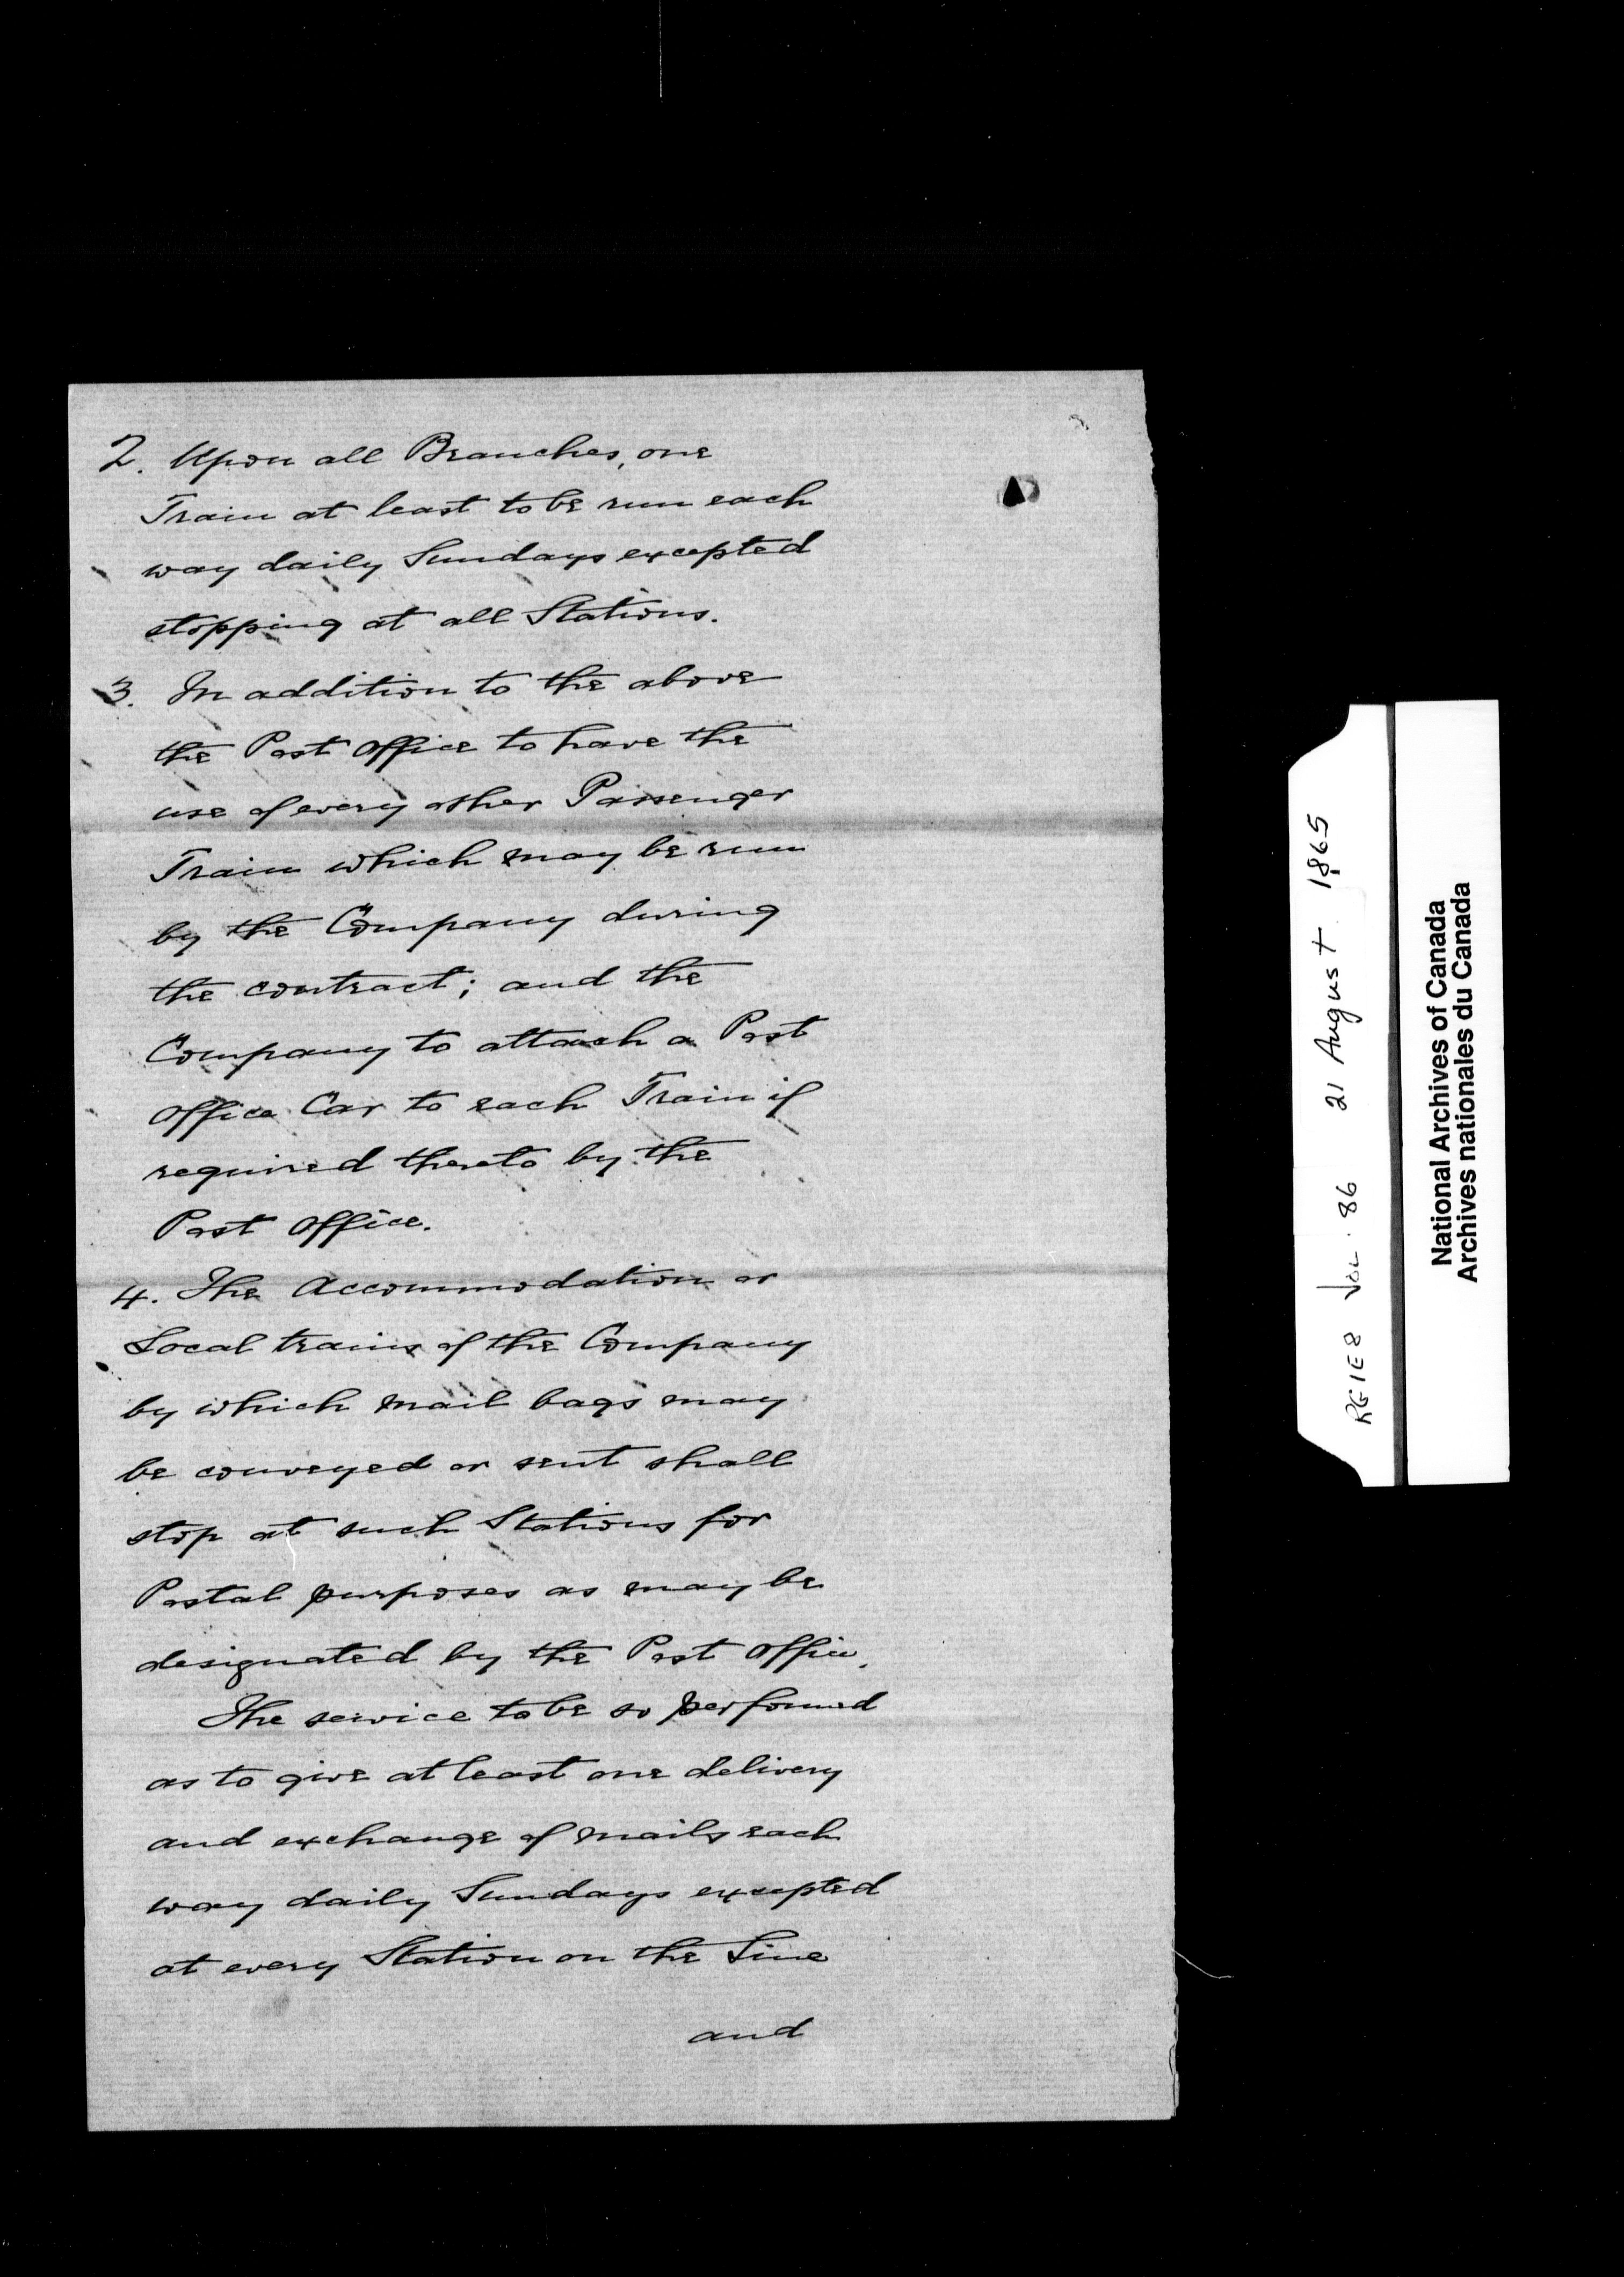 2. Upon all Branches, one
Train at least to be run each
way daily Sundays excepted
stopping at all Stations.
3. In addition to the above
the Post Office to have the
use of every other Passenger
Train which may be run
by the Company during
the contract; and the
Company to attach a Post
Office Car to each Train if
required thereto by the
Post Office.
4. The Accommodation or
Local trains of the Company
by which mail bags may
be conveyed or sent shall
stop at such Stations for
Postal purposes as may be
designated by the Post Office.
The service to be so performed
as to give at least one delivery
and exchange of mails each
way daily Sundays excepted
at every Station on the Line
and
RG1E8 Vol. 86 21 August 1865
National Archives of Canada
Archives nationales du Canada